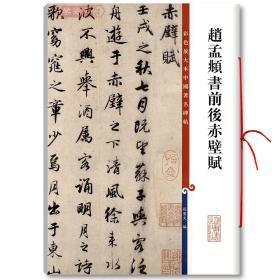 趙孟頫書前後赤壁賦
彩色放大本中國著名碑帖
赤壁賦
壬戌之秋七月既望蘇子與客泛
舟遊于赤壁之下清風徐來水
波不興舉酒屬客誦明月之詩
歌窈窕之章少焉月出於東山